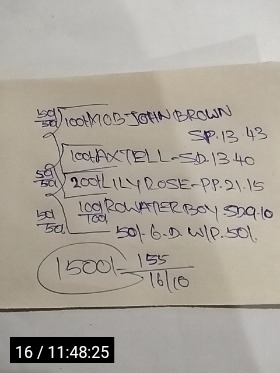 50/50 100/- MOB-JOHN BROWN
SP.13 43
100/- AXTELL-SD.13.40
50/50 200/- LILY ROSE-PP.21.15
50/50 100/100 ROWATER BOY SD9.10
50/- 6-D. W/P.50/-
1500/- 155
16/10
16 / 11:48:25